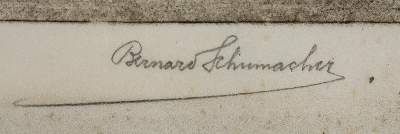 Bernard Schumacher